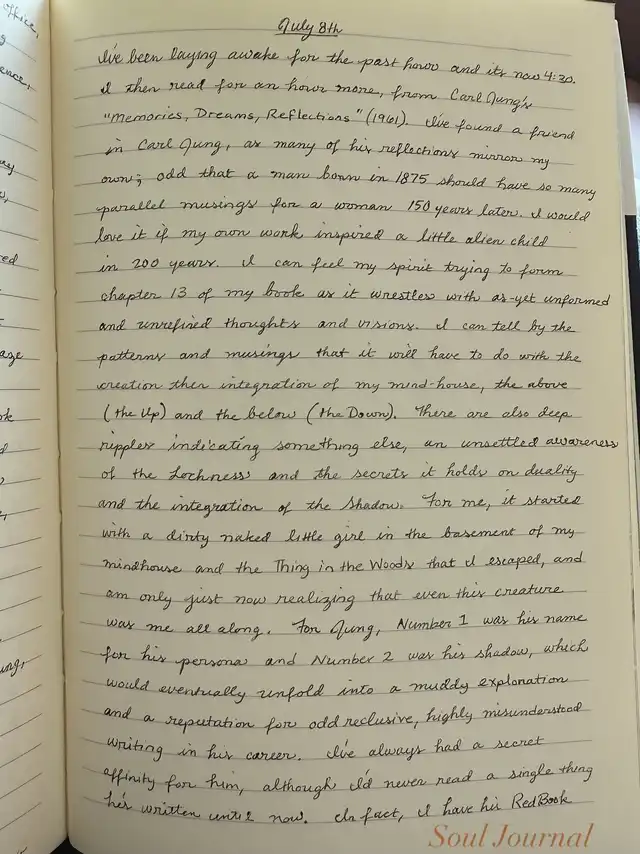 July 8th
I've been laying awake for the past hour and its now 4:30.
I then read for an hour more, from Carl Jung's
"Memories, Dreams, Reflections" (1961). I've found a friend
in Carl Jung, as many of his reflections mirror my
own; odd that a man born in 1875 should have so many
parallel musings for a woman 150 years later. I would
love it if my own work inspired a little alien child
in 200 years. I can feel my spirit trying to form
chapter 13 of my book as it wrestles with as-yet unformed
and unrefined thoughts and visions. I can tell by the
patterns and musings that it will have to do with the
creation then integration of my mind-house, the above
(the Up) and the below (the Down). There are also deep
ripples indicating something else, an unsettled awareness
of the Lochness and the secrets it holds on duality
and the integration of the Shadow. For me, it started
with a dirty naked little girl in the basement of my
mindhouse and the Thing in the Woods that I escaped, and
am only just now realizing that even this creature
was me all along. For Jung, Number 1 was his name
for his persona and Number 2 was his shadow, which
would eventually unfold into a muddy explanation
and a reputation for odd reclusive, highly misunderstood
writing in his career. I've always had a secret
affinity for him, although I'd never read a single thing
he's written until now. In fact, I have his Red Book
Soul Journal